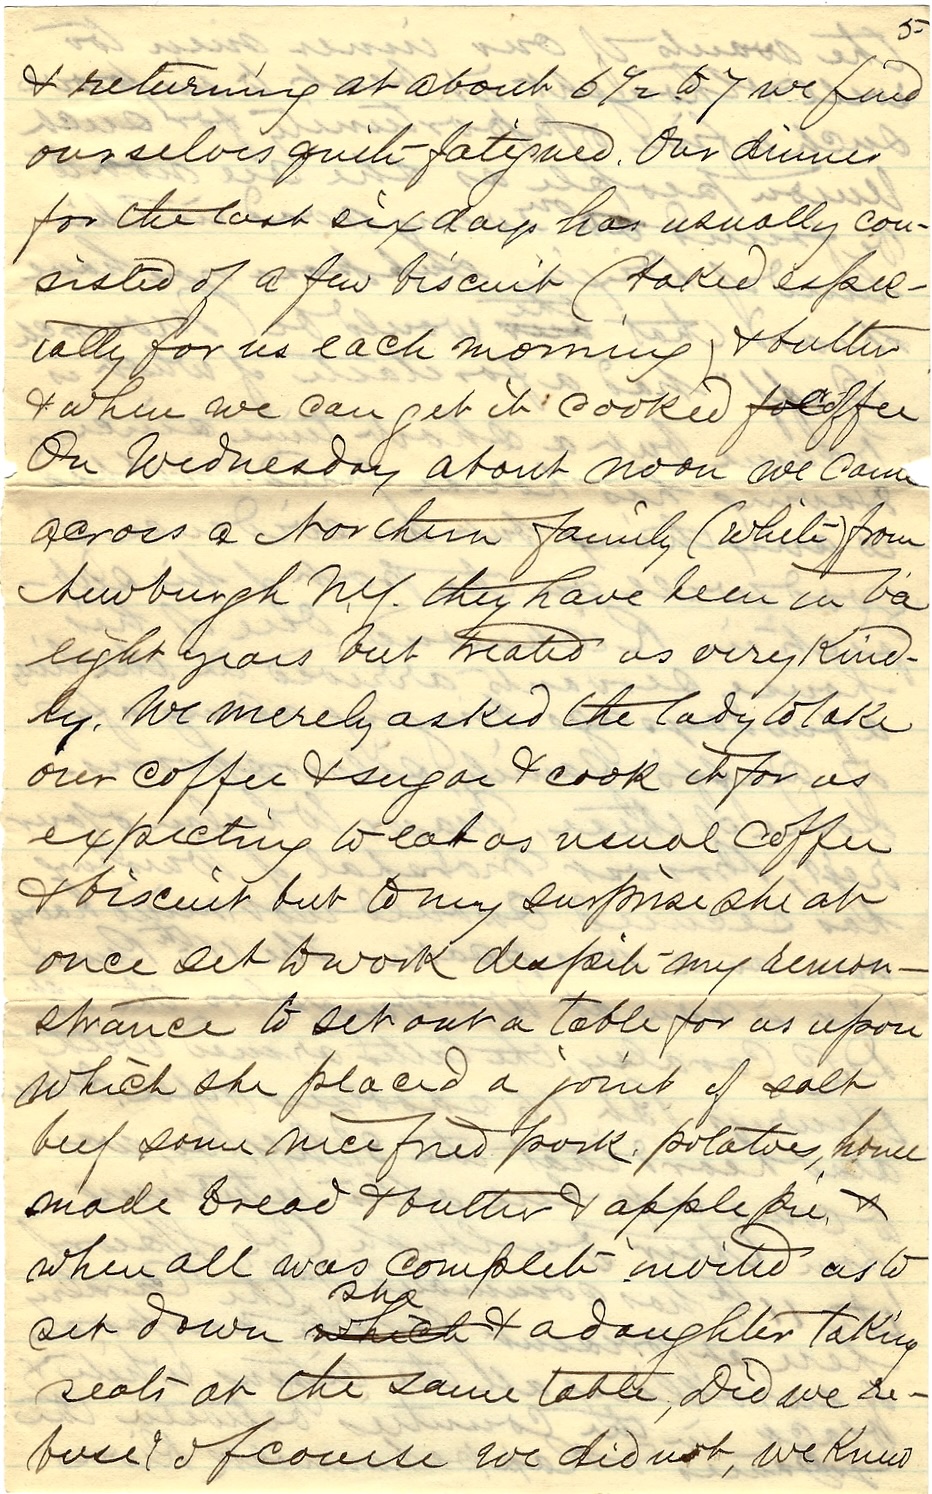 5
& returning at about 6½ to 7 we find
ourselvs quite fatigued. Our dinner
for the last six days has usually con-
sisted of a few biscuit (baked espec-
ially for us each morning) & butter
& when we can get it cooked coffee
On Wednesday about noon we came
across a Northern family (white) from
Newburgh N.Y. they have been in Va
eight years but treated us very kind-
ly. We merely asked the lady to take
our coffee & sugar & cook it for us
expecting to eat as usual coffee
& biscuit but to my surprise she at
once set to work despite my remon-
strance to set out a table for us upon
which she placed a joint of salt
beef some nice fried pork, potatoes, home
made bread & butter & apple pie, &
when all was complete invited us to
set down which she & a daughter taking
seats at the same table, Did we re-
fuse? of course we did not, we knew